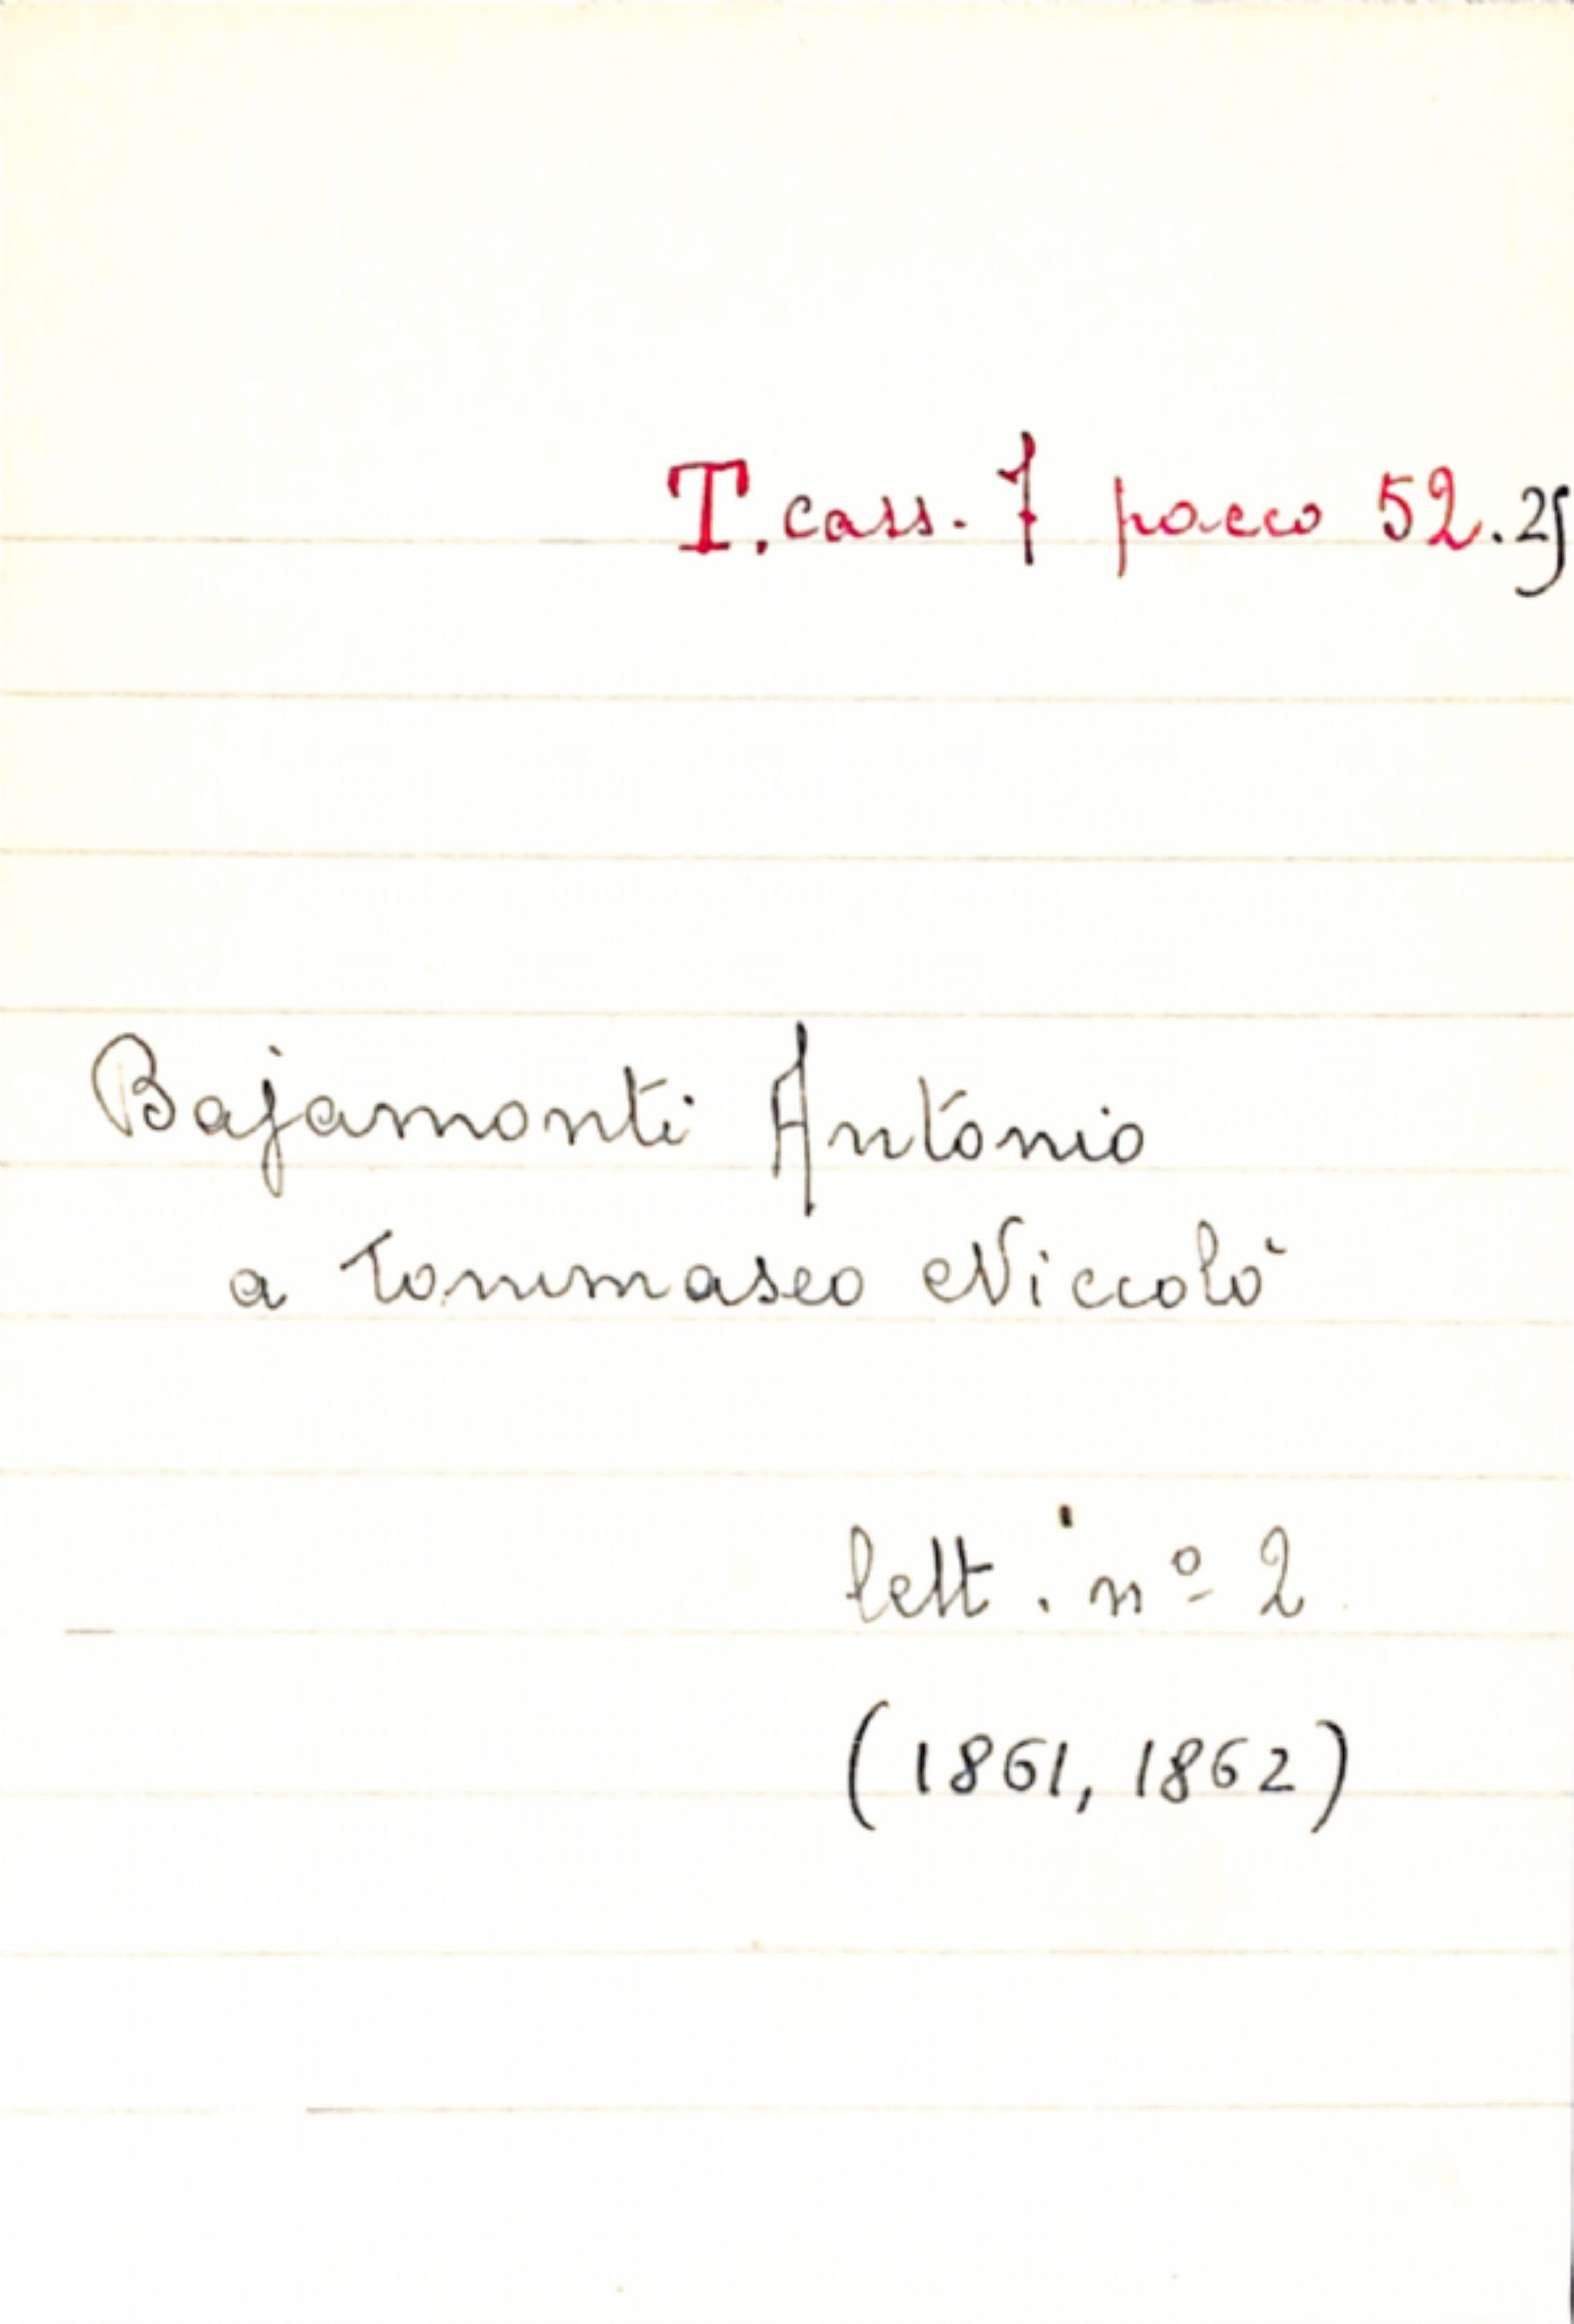 T. cass. 7 pacco 52.25
Bajamonti Antonio
a Tommaseo Niccolò
lett. nº 2
(1861, 1862)